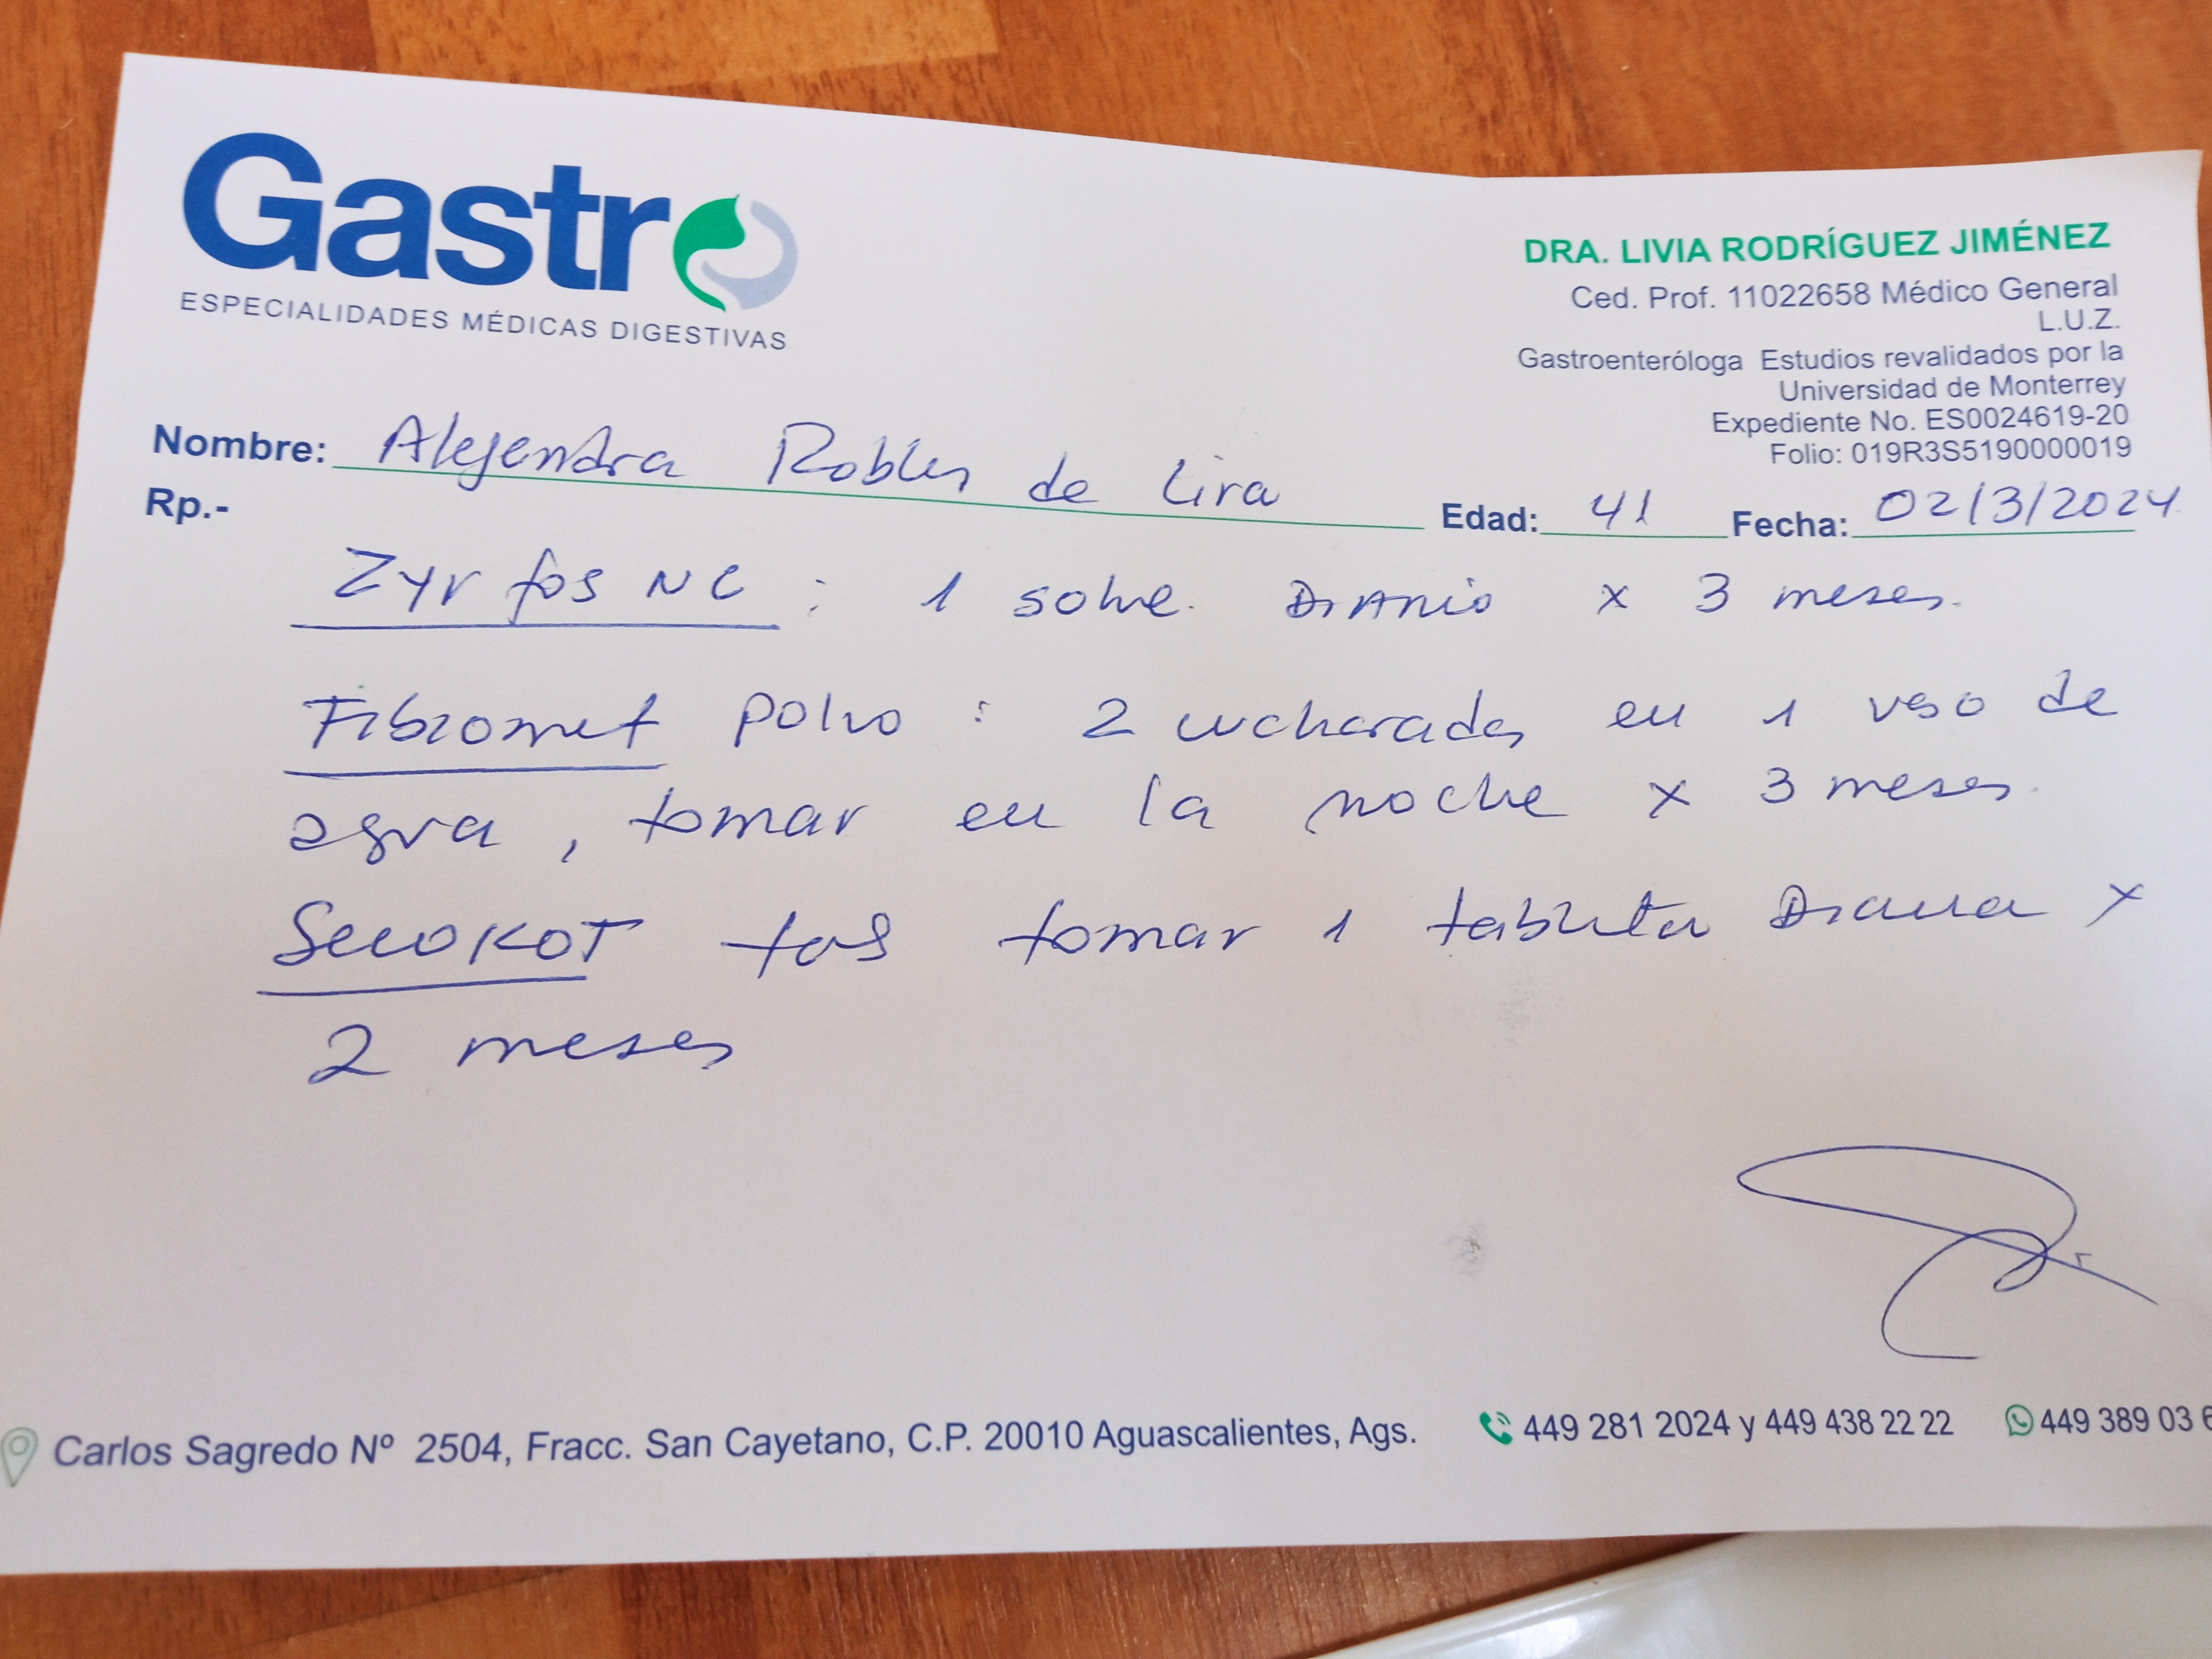 Gastro
ESPECIALIDADES MÉDICAS DIGESTIVAS
DRA. LIVIA RODRÍGUEZ JIMÉNEZ
Ced. Prof. 11022658 Médico General
L.U.Z.
Gastroenteróloga Estudios revalidados por la
Universidad de Monterrey
Expediente No. ES0024619-20
Folio: 019R3S5190000019
Nombre: Alejandra Robles de Lira Edad: 41 Fecha: 02/3/2024
Rp.-
Zyr fos NC : 1 sobre. Diario x 3 meses.
Fibromet polvo : 2 cucharadas en 1 vaso de
agua, tomar en la noche x 3 meses.
Senokot tab tomar 1 tableta Diaria x
2 meses
Carlos Sagredo Nº 2504, Fracc. San Cayetano, C.P. 20010 Aguascalientes, Ags. 449 281 2024 y 449 438 22 22 449 389 03